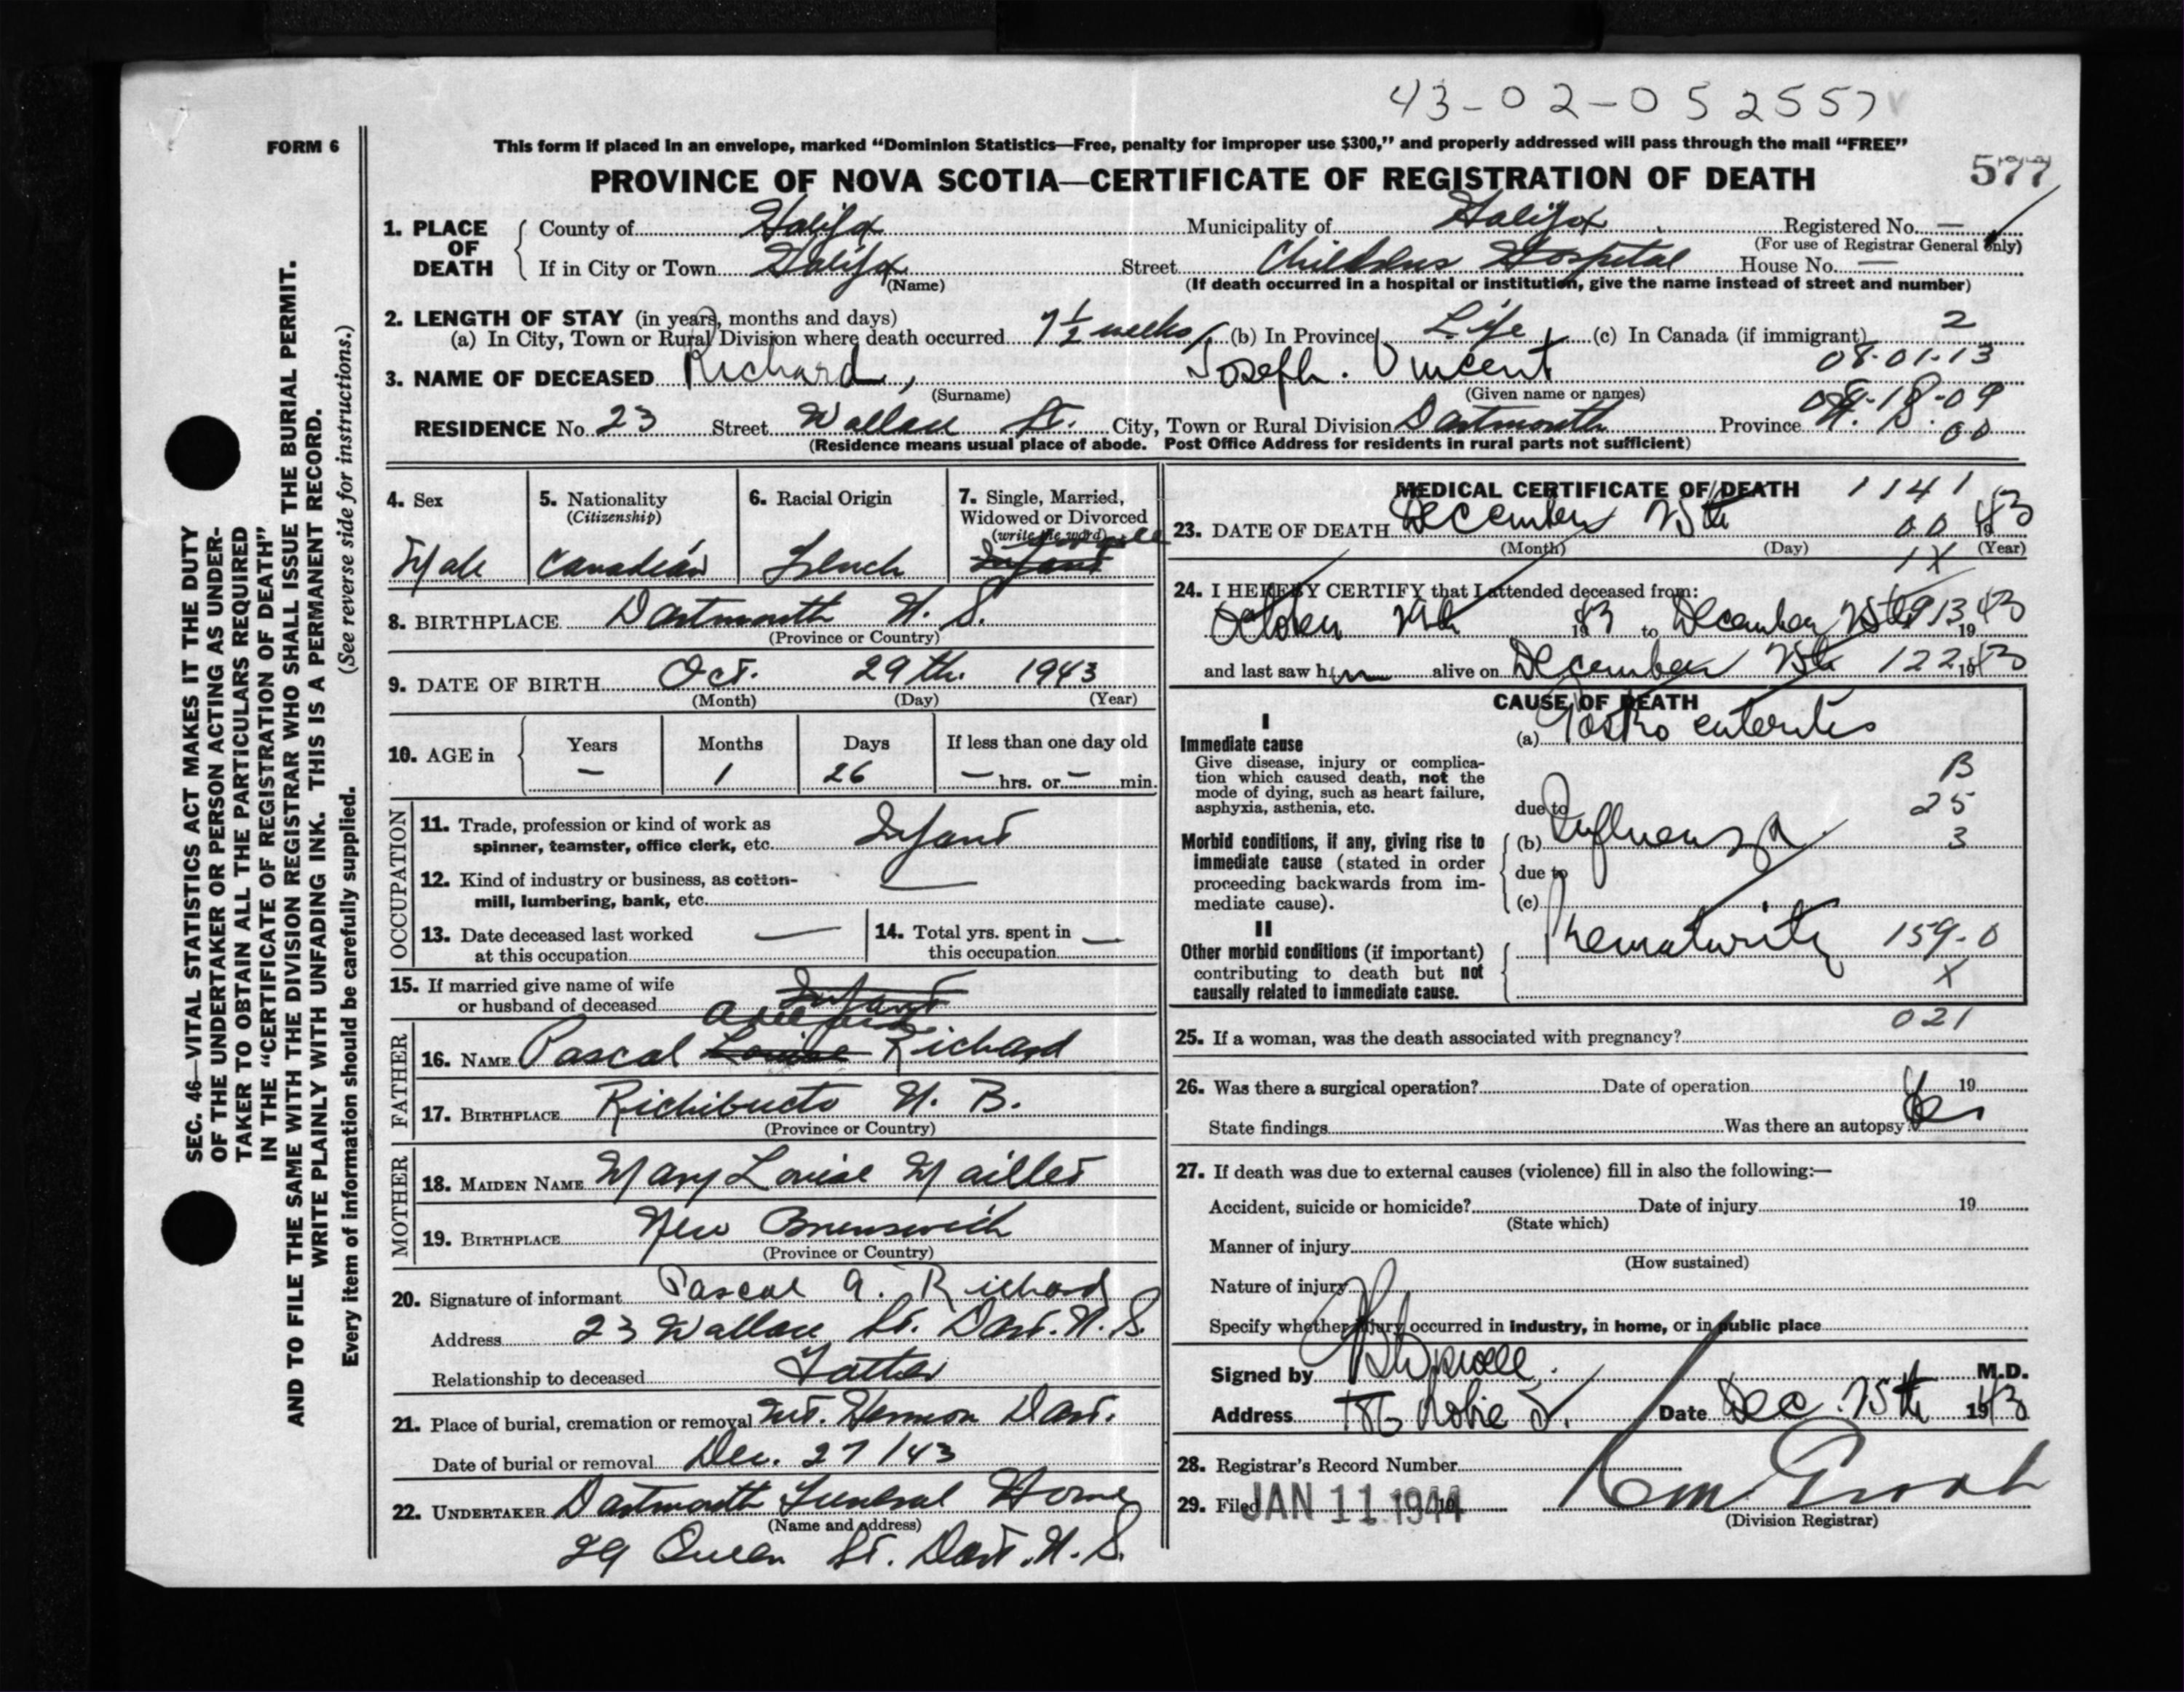 43-02-052557
FORM 6
This form if placed in an envelope, marked “Dominion Statistics—Free, penalty for improper use $300,” and properly addressed will pass through the mail “FREE”
577
PROVINCE OF NOVA SCOTIA—CERTIFICATE OF REGISTRATION OF DEATH
1. PLACE OF DEATH County of Halifax Municipality of Halifax Registered No. —
(For use of Registrar General only)
If in City or Town Halifax Street Childrens Hospital House No. —
(Name) (If death occurred in a hospital or institution, give the name instead of street and number)
2. LENGTH OF STAY (in years, months and days)
(a) In City, Town or Rural Division where death occurred 7½ weeks (b) In Province Life (c) In Canada (if immigrant) 2
08-01-13
3. NAME OF DECEASED Richard, Joseph. Vincent
(Surname) (Given name or names)
09-18-09
RESIDENCE No. 23 Street Wallace St. City, Town or Rural Division Dartmouth Province N. S. 00
(Residence means usual place of abode. Post Office Address for residents in rural parts not sufficient)
4. Sex Male
5. Nationality (Citizenship) Canadian
6. Racial Origin French
7. Single, Married, Widowed or Divorced (write the word) Infant
8. BIRTHPLACE Dartmouth N. S.
(Province or Country)
9. DATE OF BIRTH Oct. 29th. 1943
(Month) (Day) (Year)
10. AGE in Years — Months 1 Days 26 If less than one day old — hrs. or — min.
OCCUPATION
11. Trade, profession or kind of work as spinner, teamster, office clerk, etc. Infant
12. Kind of industry or business, as cotton-mill, lumbering, bank, etc. —
13. Date deceased last worked at this occupation —
14. Total yrs. spent in this occupation —
15. If married give name of wife or husband of deceased Infant
FATHER
16. NAME Pascal Louise Richard
17. BIRTHPLACE Richibucto N. B.
(Province or Country)
MOTHER
18. MAIDEN NAME Mary Louise Maillet
19. BIRTHPLACE New Brunswick
(Province or Country)
20. Signature of informant Pascal A. Richard
Address 23 Wallace St. Dart. N. S.
Relationship to deceased Father
21. Place of burial, cremation or removal Mt. Hermon Dart.
Date of burial or removal Dec. 27/43
22. UNDERTAKER Dartmouth Funeral Home
(Name and address)
29 Queen St. Dart. N. S.
MEDICAL CERTIFICATE OF DEATH 1141
23. DATE OF DEATH December 25th 00 1943
(Month) (Day) (Year)
1X
24. I HEREBY CERTIFY that I attended deceased from:
October 29th 1943 to December 25th 913 1943
and last saw him alive on December 25th 122 1943
CAUSE OF DEATH
I
Immediate cause
Give disease, injury or complication which caused death, not the mode of dying, such as heart failure, asphyxia, asthenia, etc.
(a) Gastro enteritis
B
25
due to
Morbid conditions, if any, giving rise to immediate cause (stated in order proceeding backwards from immediate cause).
(b) Influenza 3
due to
(c)
II
Other morbid conditions (if important) contributing to death but not causally related to immediate cause.
Prematurity 159-0
X
021
25. If a woman, was the death associated with pregnancy?
26. Was there a surgical operation? Date of operation 19
State findings Was there an autopsy? Yes
27. If death was due to external causes (violence) fill in also the following:—
Accident, suicide or homicide? Date of injury 19
(State which)
Manner of injury
(How sustained)
Nature of injury
Specify whether injury occurred in industry, in home, or in public place
Signed by M.D.
Address Robie St. Date Dec. 25th 1943
28. Registrar's Record Number
29. Filed JAN 11 1944 19
(Division Registrar)
SEC. 46—VITAL STATISTICS ACT MAKES IT THE DUTY
OF THE UNDERTAKER OR PERSON ACTING AS UNDER-
TAKER TO OBTAIN ALL THE PARTICULARS REQUIRED
IN THE “CERTIFICATE OF REGISTRATION OF DEATH”
AND TO FILE THE SAME WITH THE DIVISION REGISTRAR WHO SHALL ISSUE THE BURIAL PERMIT.
WRITE PLAINLY WITH UNFADING INK. THIS IS A PERMANENT RECORD.
Every item of information should be carefully supplied. (See reverse side for instructions.)